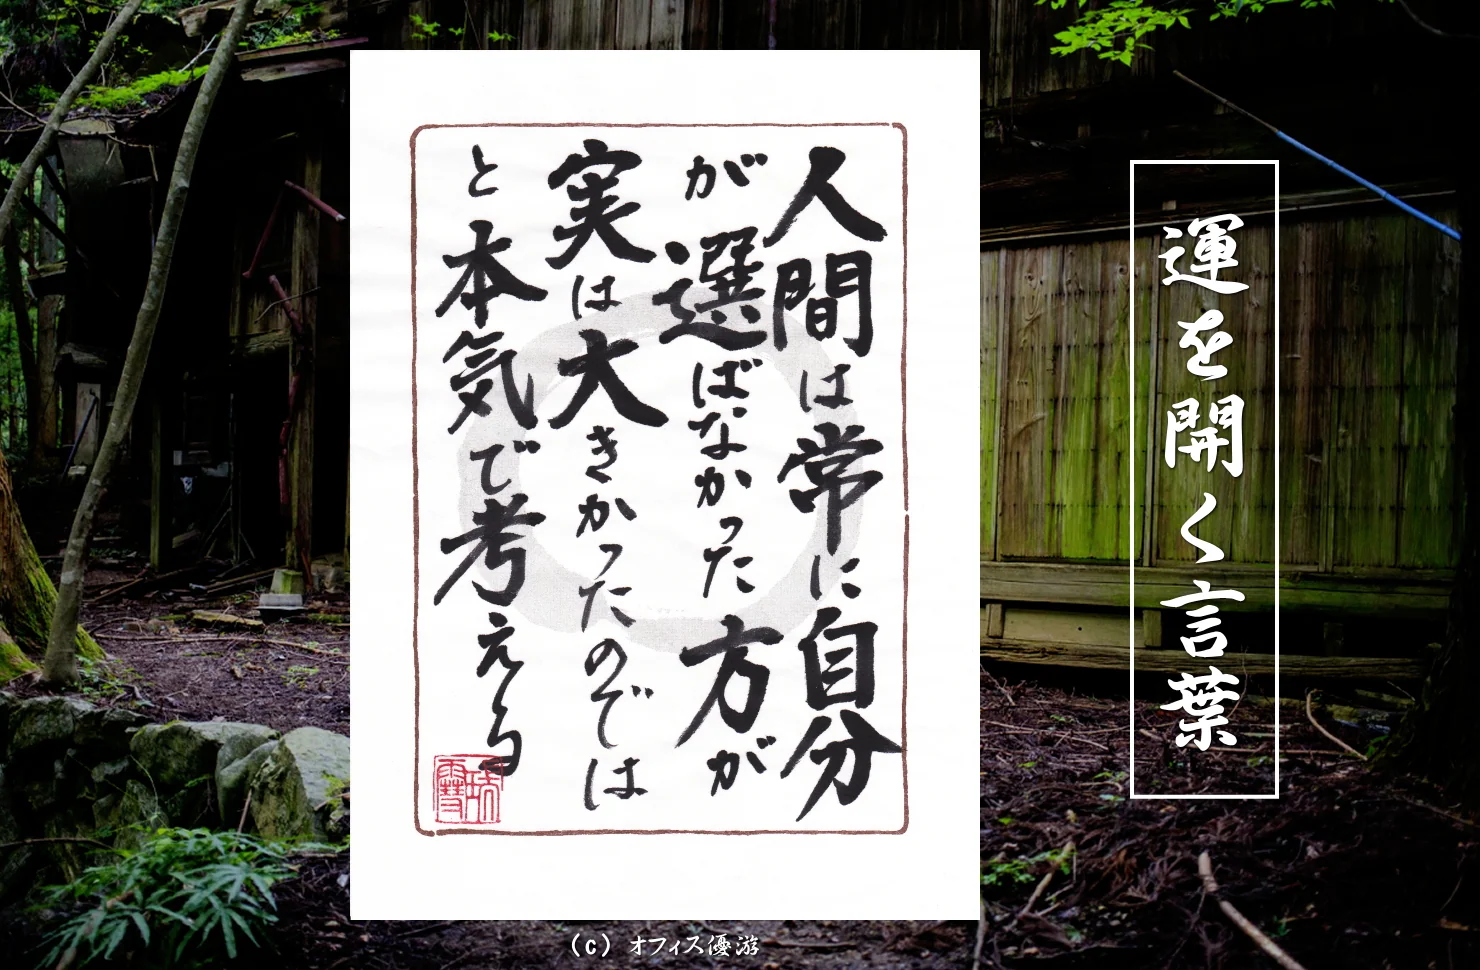 人間は常に自分
が選ばなかった方が
実は大きかったのでは
と本気で考える
運を開く言葉
(c) オフィス優游